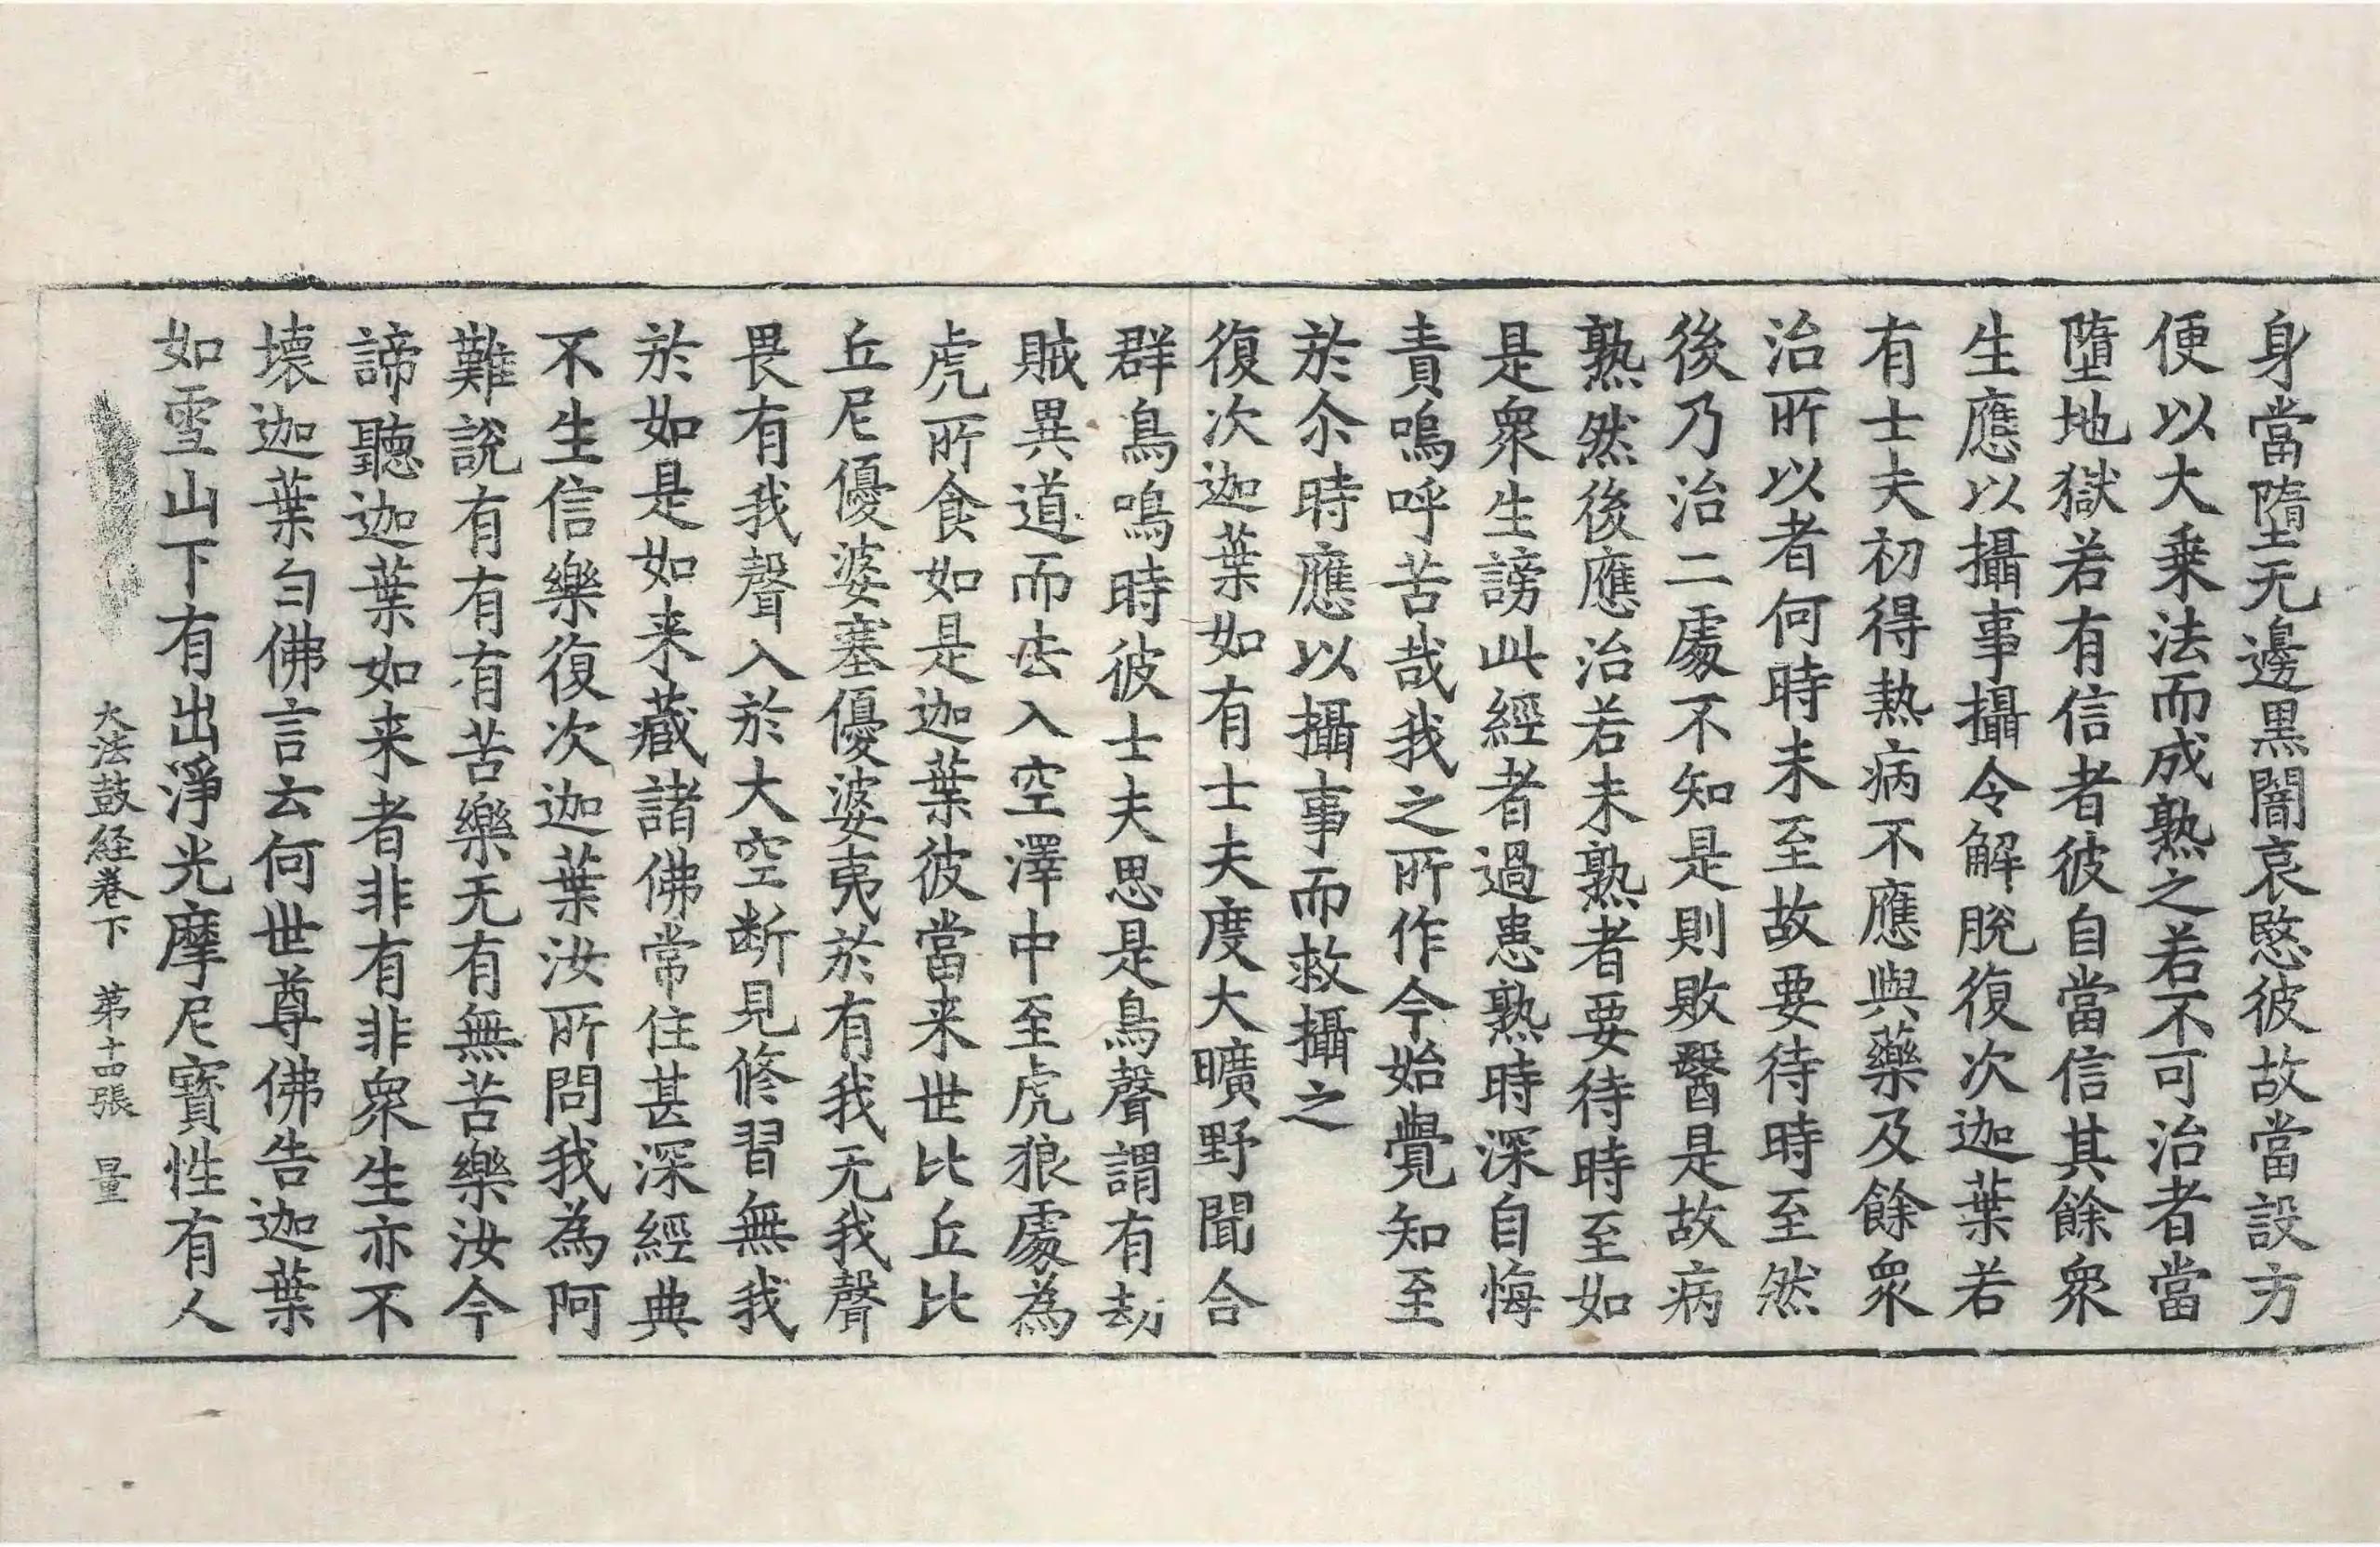 身當墮无邊黑闇哀愍彼故當設方
便以大乗法而成熟之若不可治者當
墮地獄若有信者彼自當信其餘衆
生應以攝事攝令解脫復次迦葉若
有士夫初得熱病不應與藥及餘衆
治所以者何時未至故要待時至然
後乃治二處不知是則敗醫是故病
熟然後應治若未熟者要待時至如
是衆生謗此經者過患熟時深自悔
責嗚呼苦哉我之所作今始覺知至
於尒時應以攝事而救攝之
復次迦葉如有士夫度大曠野聞合
群鳥鳴時彼士夫思是鳥聲謂有劫
賊異道而去入空澤中至虎狼處為
虎所食如是迦葉彼當来世比丘比
丘尼優婆塞優婆夷於有我无我聲
畏有我聲入於大空断見修習無我
於如是如来藏諸佛常住甚深經典
不生信樂復次迦葉汝所問我為阿
難說有有有苦樂无有無苦樂汝今
諦聽迦葉如来者非有非衆生亦不
壊迦葉白佛言云何世尊佛告迦葉
如雪山下有出淨光摩尼寳性有人
大法鼓経巻下 第十四張 量